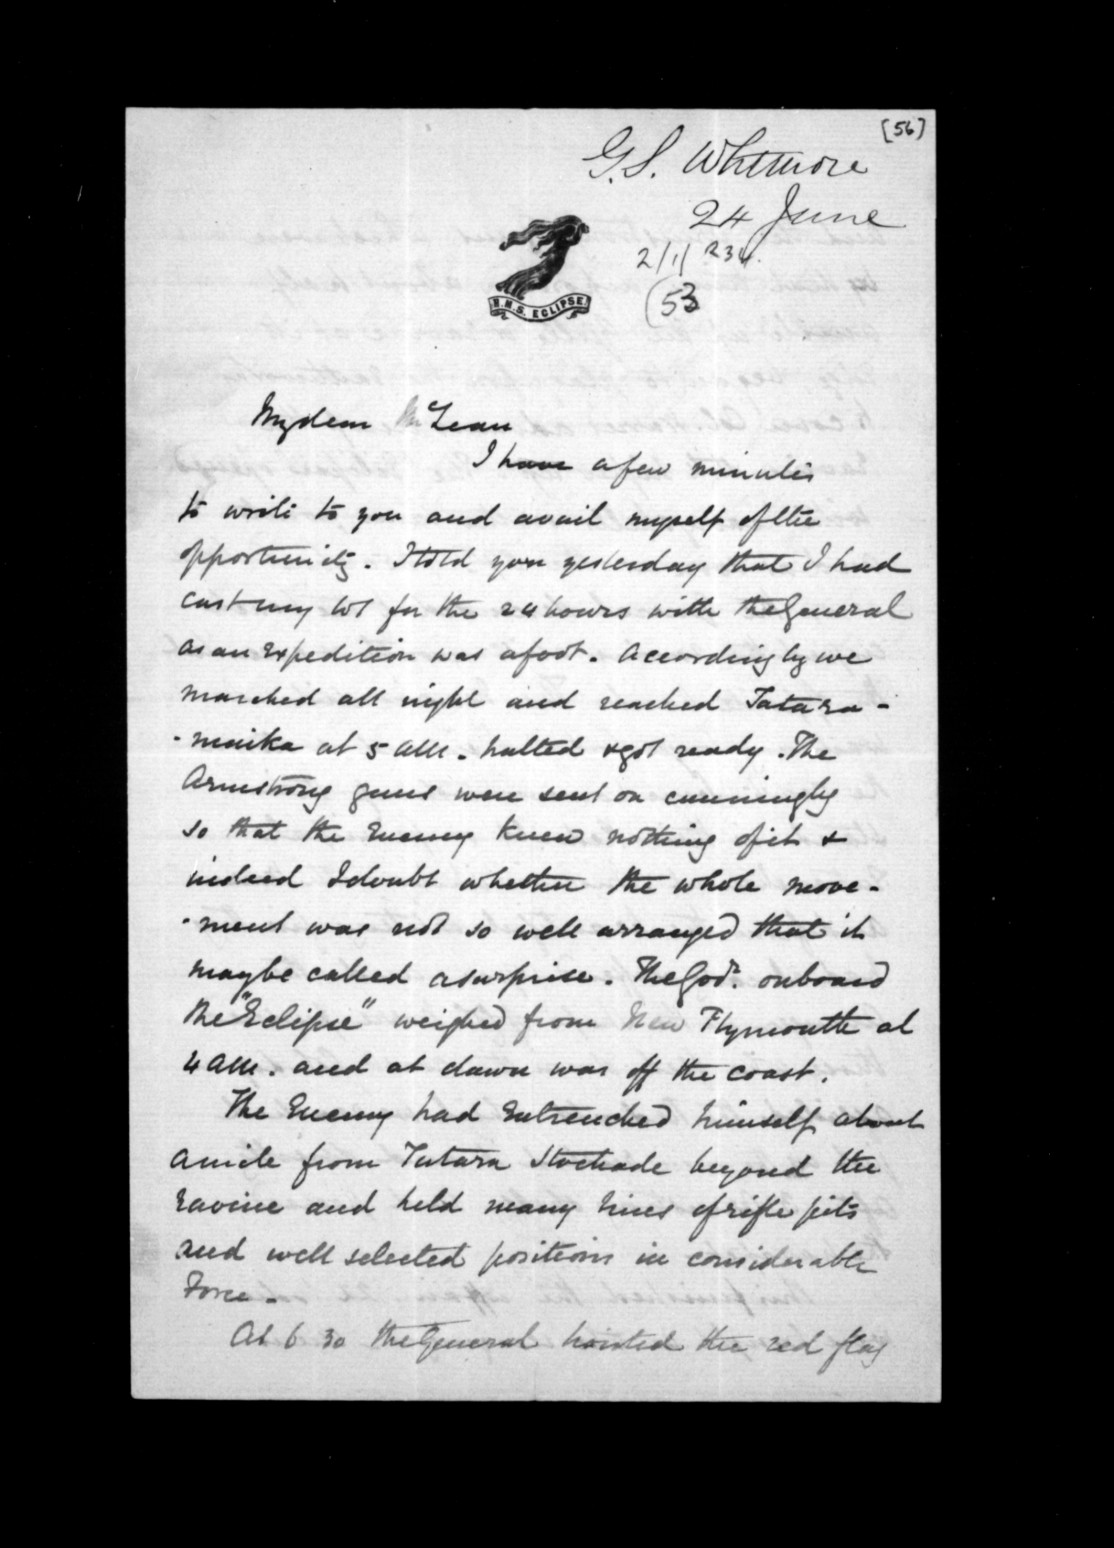 [56]
G.S. Whitmore
24 June
2/1/ 234.
(53
H.M.S. ECLIPSE.
My dear McLean
I have a few minutes
to write to you and avail myself of the
opportunity. I told you yesterday that I had
cast my lot for the 24 hours with the General
as an Expedition was afoot. Accordingly we
marched all night and reached Tatara-
-maika at 5 AM. halted & got ready. The
Armstrong guns were sent on cunningly
so that the Enemy knew nothing of it &
indeed I doubt whether the whole move-
-ment was not so well arranged that it
may be called a surprise. The Govr. onboard
the "Eclipse" weighed from New Plymouth at
4 AM. and at dawn was off the coast.
The Enemy had Entrenched himself about
a mile from Tatara Stockade beyond the
ravine and held many lines of rifle pits
and well selected positions in considerable
Force.
At 6 30 the General hoisted the red flag